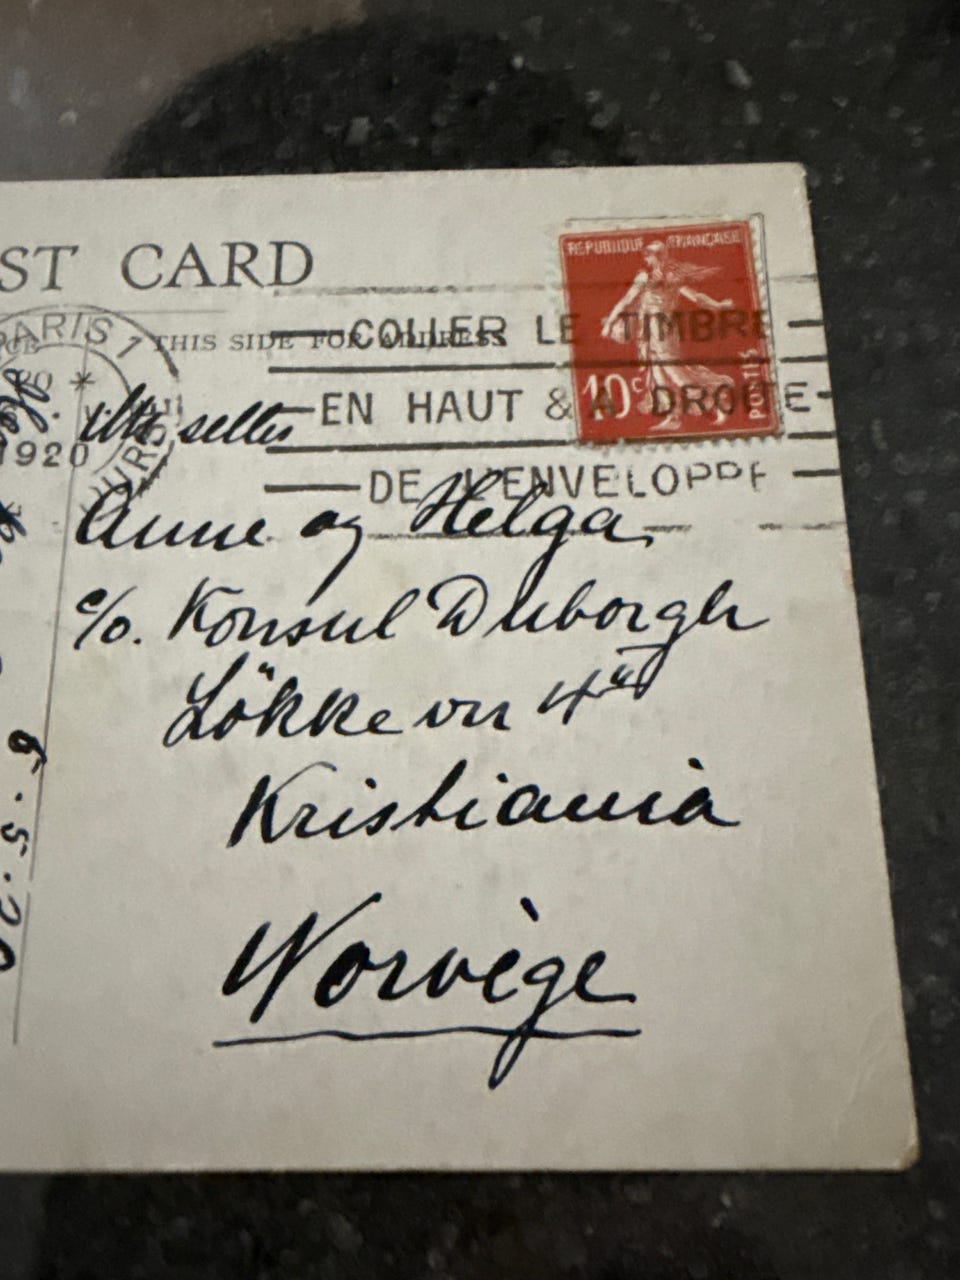 ST CARD
THIS SIDE FOR ADDRESS
REPUBLIQUE FRANÇAISE
10c
POSTES
PARIS 1
1920
COLLER LE TIMBRE
EN HAUT & A DROITE
DE L'ENVELOPPE
Anne og Helga
c/o. Konsul Duborgh
Lökkevn 4
Kristiania
Norvège
6.5.20